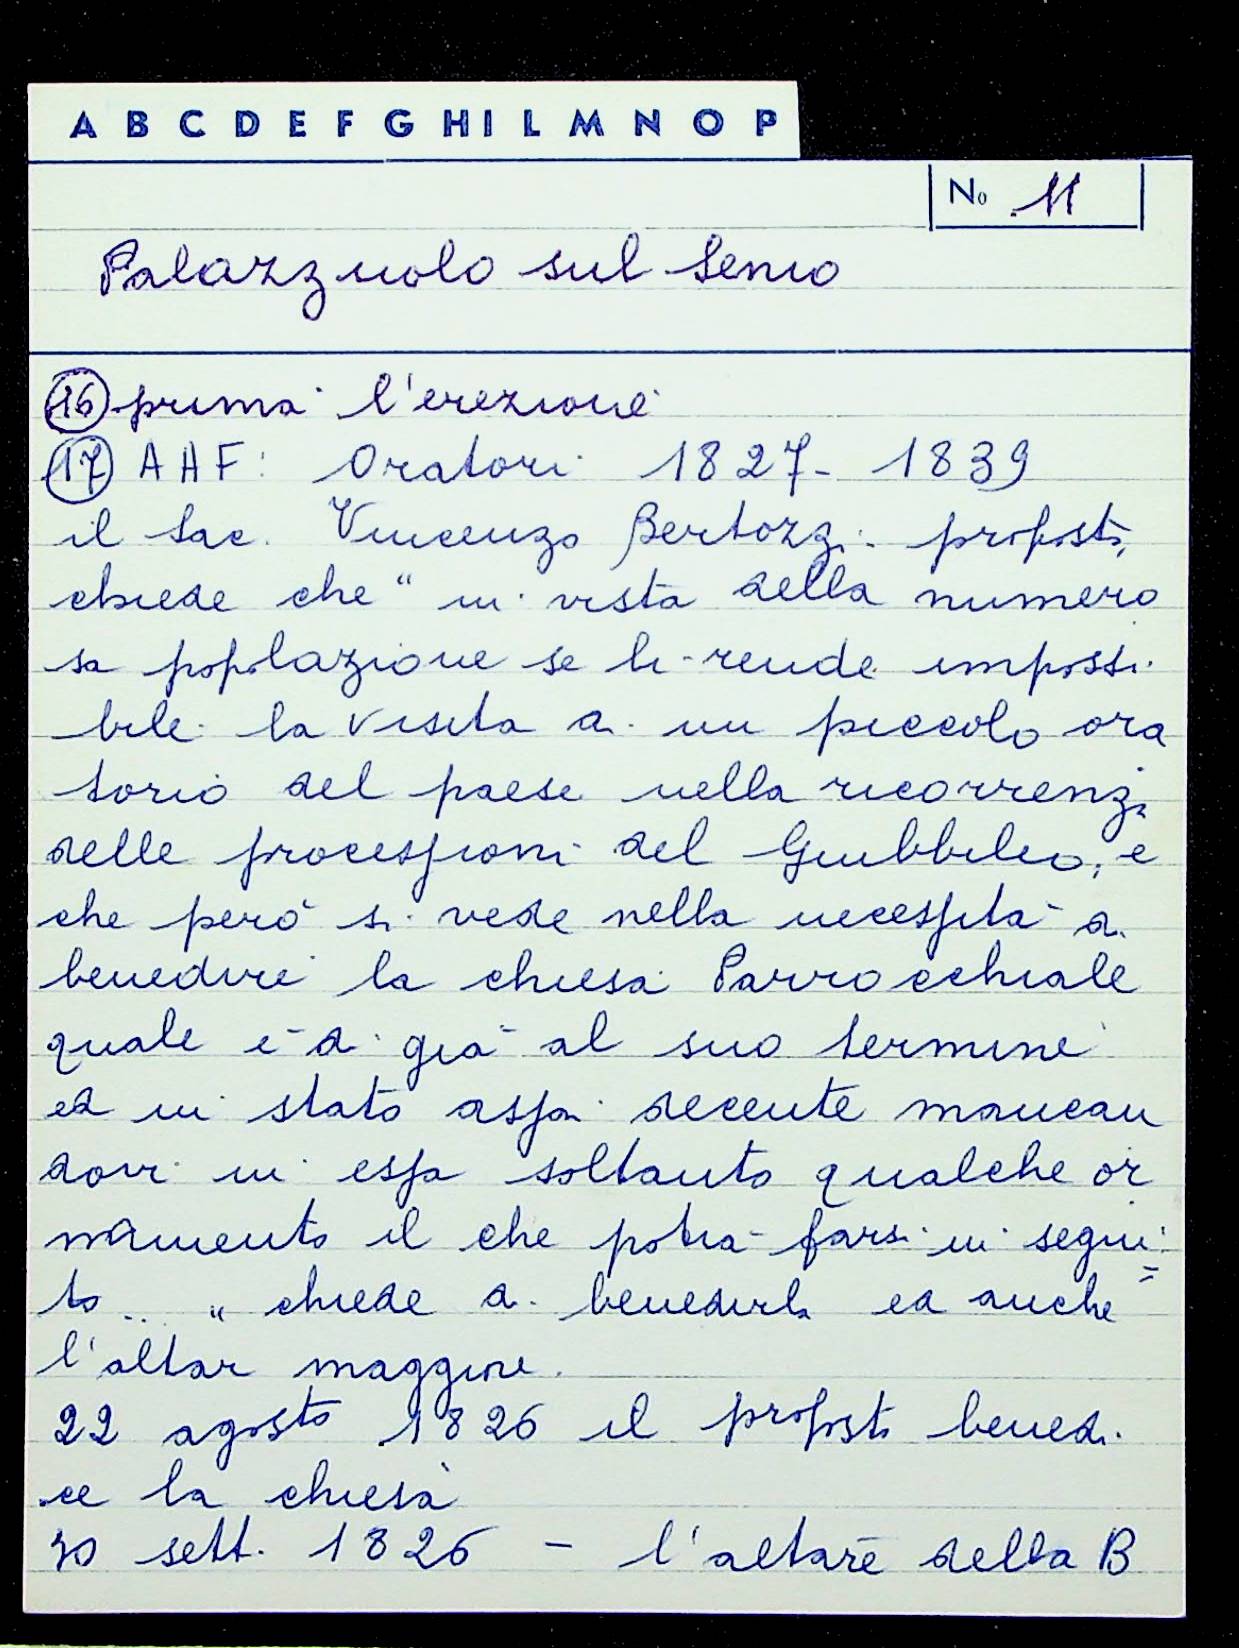 A B C D E F G H I L M N O P
No 11
Palazzuolo sul Senio
16 prima l'erezione
17 AAF: Oratori 1827-1839
il Sac. Vincenzo Bertozzi proposto,
chiede che "in vista della numero
sa popolazione se li rende impossi
bile la visita di un piccolo ora
torio del paese nella ricorrenza
delle processioni del Giubbileo, e
che però si vede nella necessità di
benedire la chiesa Parrocchiale
quale è di già al suo termine
ed in stato assai decente mancan
dovi in essa soltanto qualche or
namento il che potrà farsi in segui=
to... " chiede di benedirla ed anche
l'altar maggiore.
22 agosto 1826 il proposto benedi
ce la chiesa
30 sett. 1826 - l'altare della B